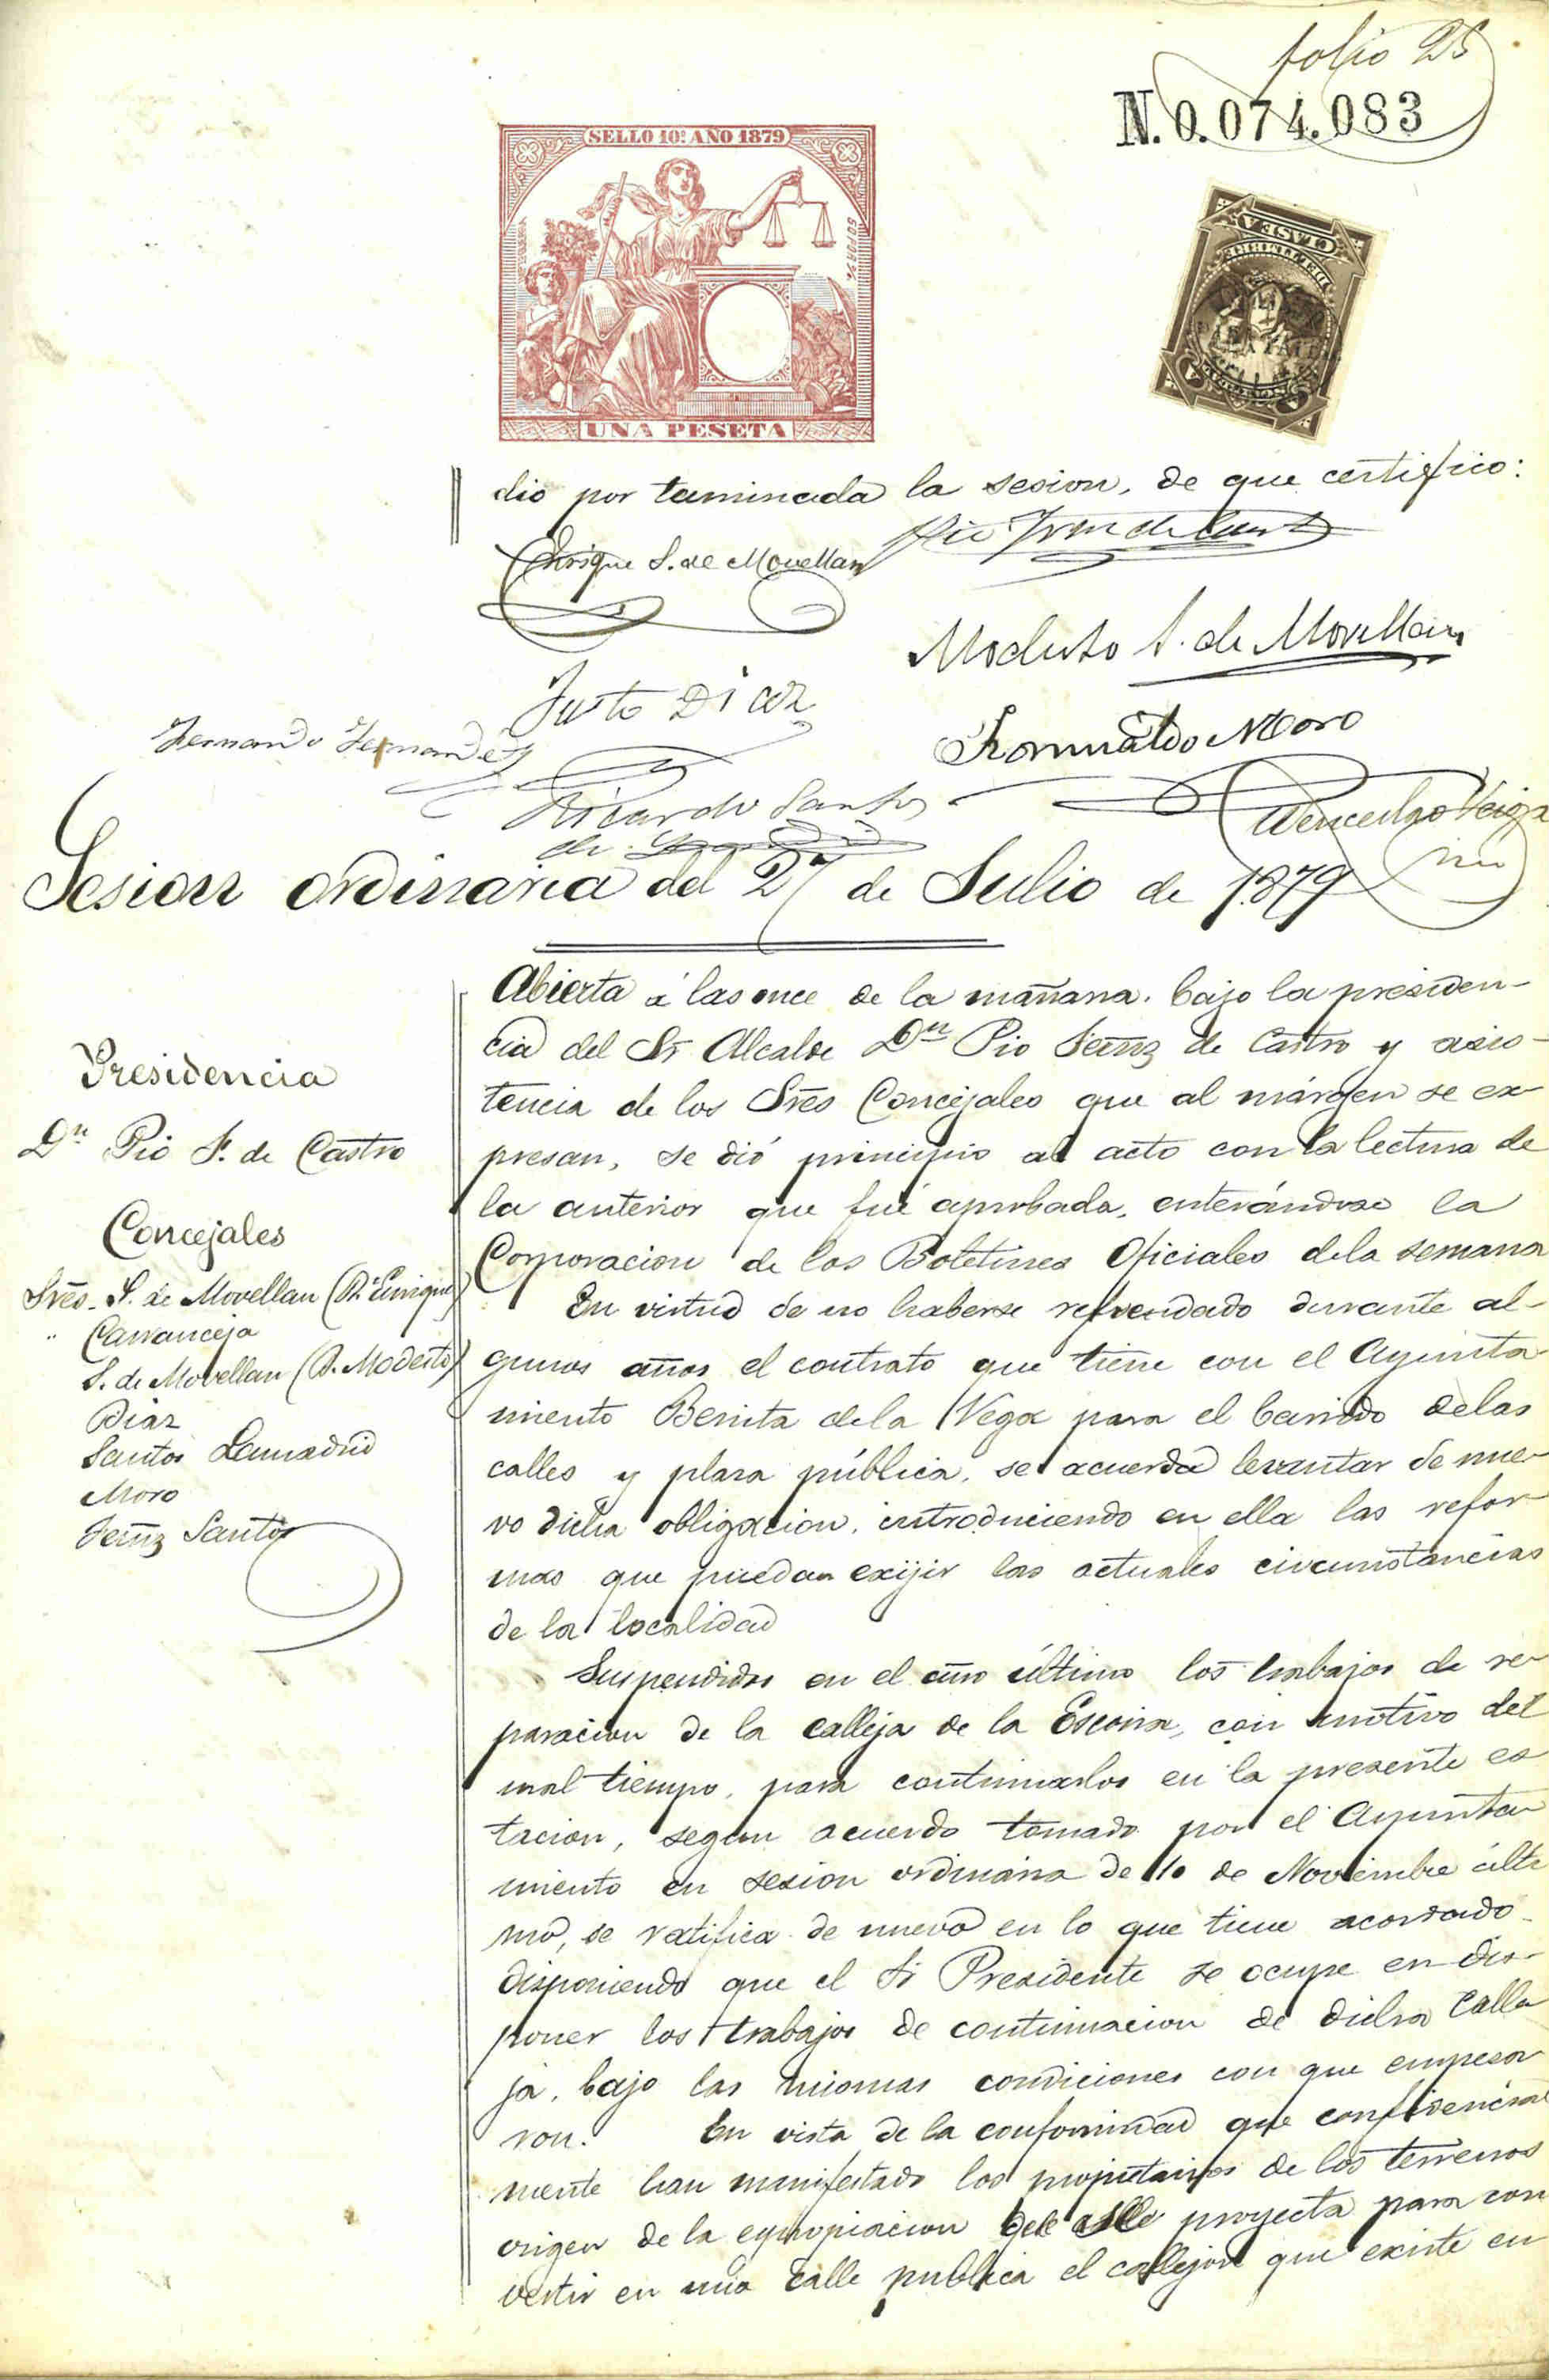 folio 25
N. 0.074.083
SELLO 10º AÑO 1879
UNA PESETA
CLASE
dio por terminada la sesion, de que certifico:
Enrique S. de Movellan
Modesto S. de Movellan
Justo Diaz
Fernando Fernandez
Romualdo Moro
Ricardo Santos
Wenceslao Veiga
Sesion ordinaria del 27 de Julio de 1879
Presidencia
Dn Pio F. de Castro
Concejales
Sres. S. de Movellan (Dn Enrique)
" Carranceja
S. de Movellan (D. Modesto)
Diaz
Santos Lamadrid
Moro
Fernz Santos
Abierta á las once de la mañana, bajo la presiden-
cia del Sr Alcalde Dn Pio Fernz de Castro y asis-
tencia de los Sres Concejales que al márgen se ex-
presan, se dió principio al acto con la lectura de
la anterior que fué aprobada, enterándose la
Corporacion de los Boletines Oficiales dela semana
En virtud de no haberse refrendado durante al-
gunos años el contrato que tiene con el Ayunta-
miento Benita dela Vega para el barrido delas
calles y plaza pública, se acuerda levantar de nue-
vo dicha obligacion, introduciendo en ella las refor-
mas que puedan exijir las actuales circunstancias
de la localidad
Suspendidos en el año último los trabajos de re-
paracion de la calleja de la Escoria, con motivo del
mal tiempo, para continuarlos en la presente es-
tacion, segun acuerdo tomado por el Ayunta-
miento en sesion ordinaria de 10 de Noviembre últi
mo, se ratifica de nuevo en lo que tiene acordado
disponiendo que el Sr Presidente se ocupe en dis-
poner los trabajos de continuacion de dicha Calle
ja, bajo las mismas condiciones con que empeza-
ron. En vista de la conformidad que confidencial
mente han manifestado los propietarios de los terrenos
origen de la expropiacion que se proyecta para con
vertir en una calle publica el callejon que existe en